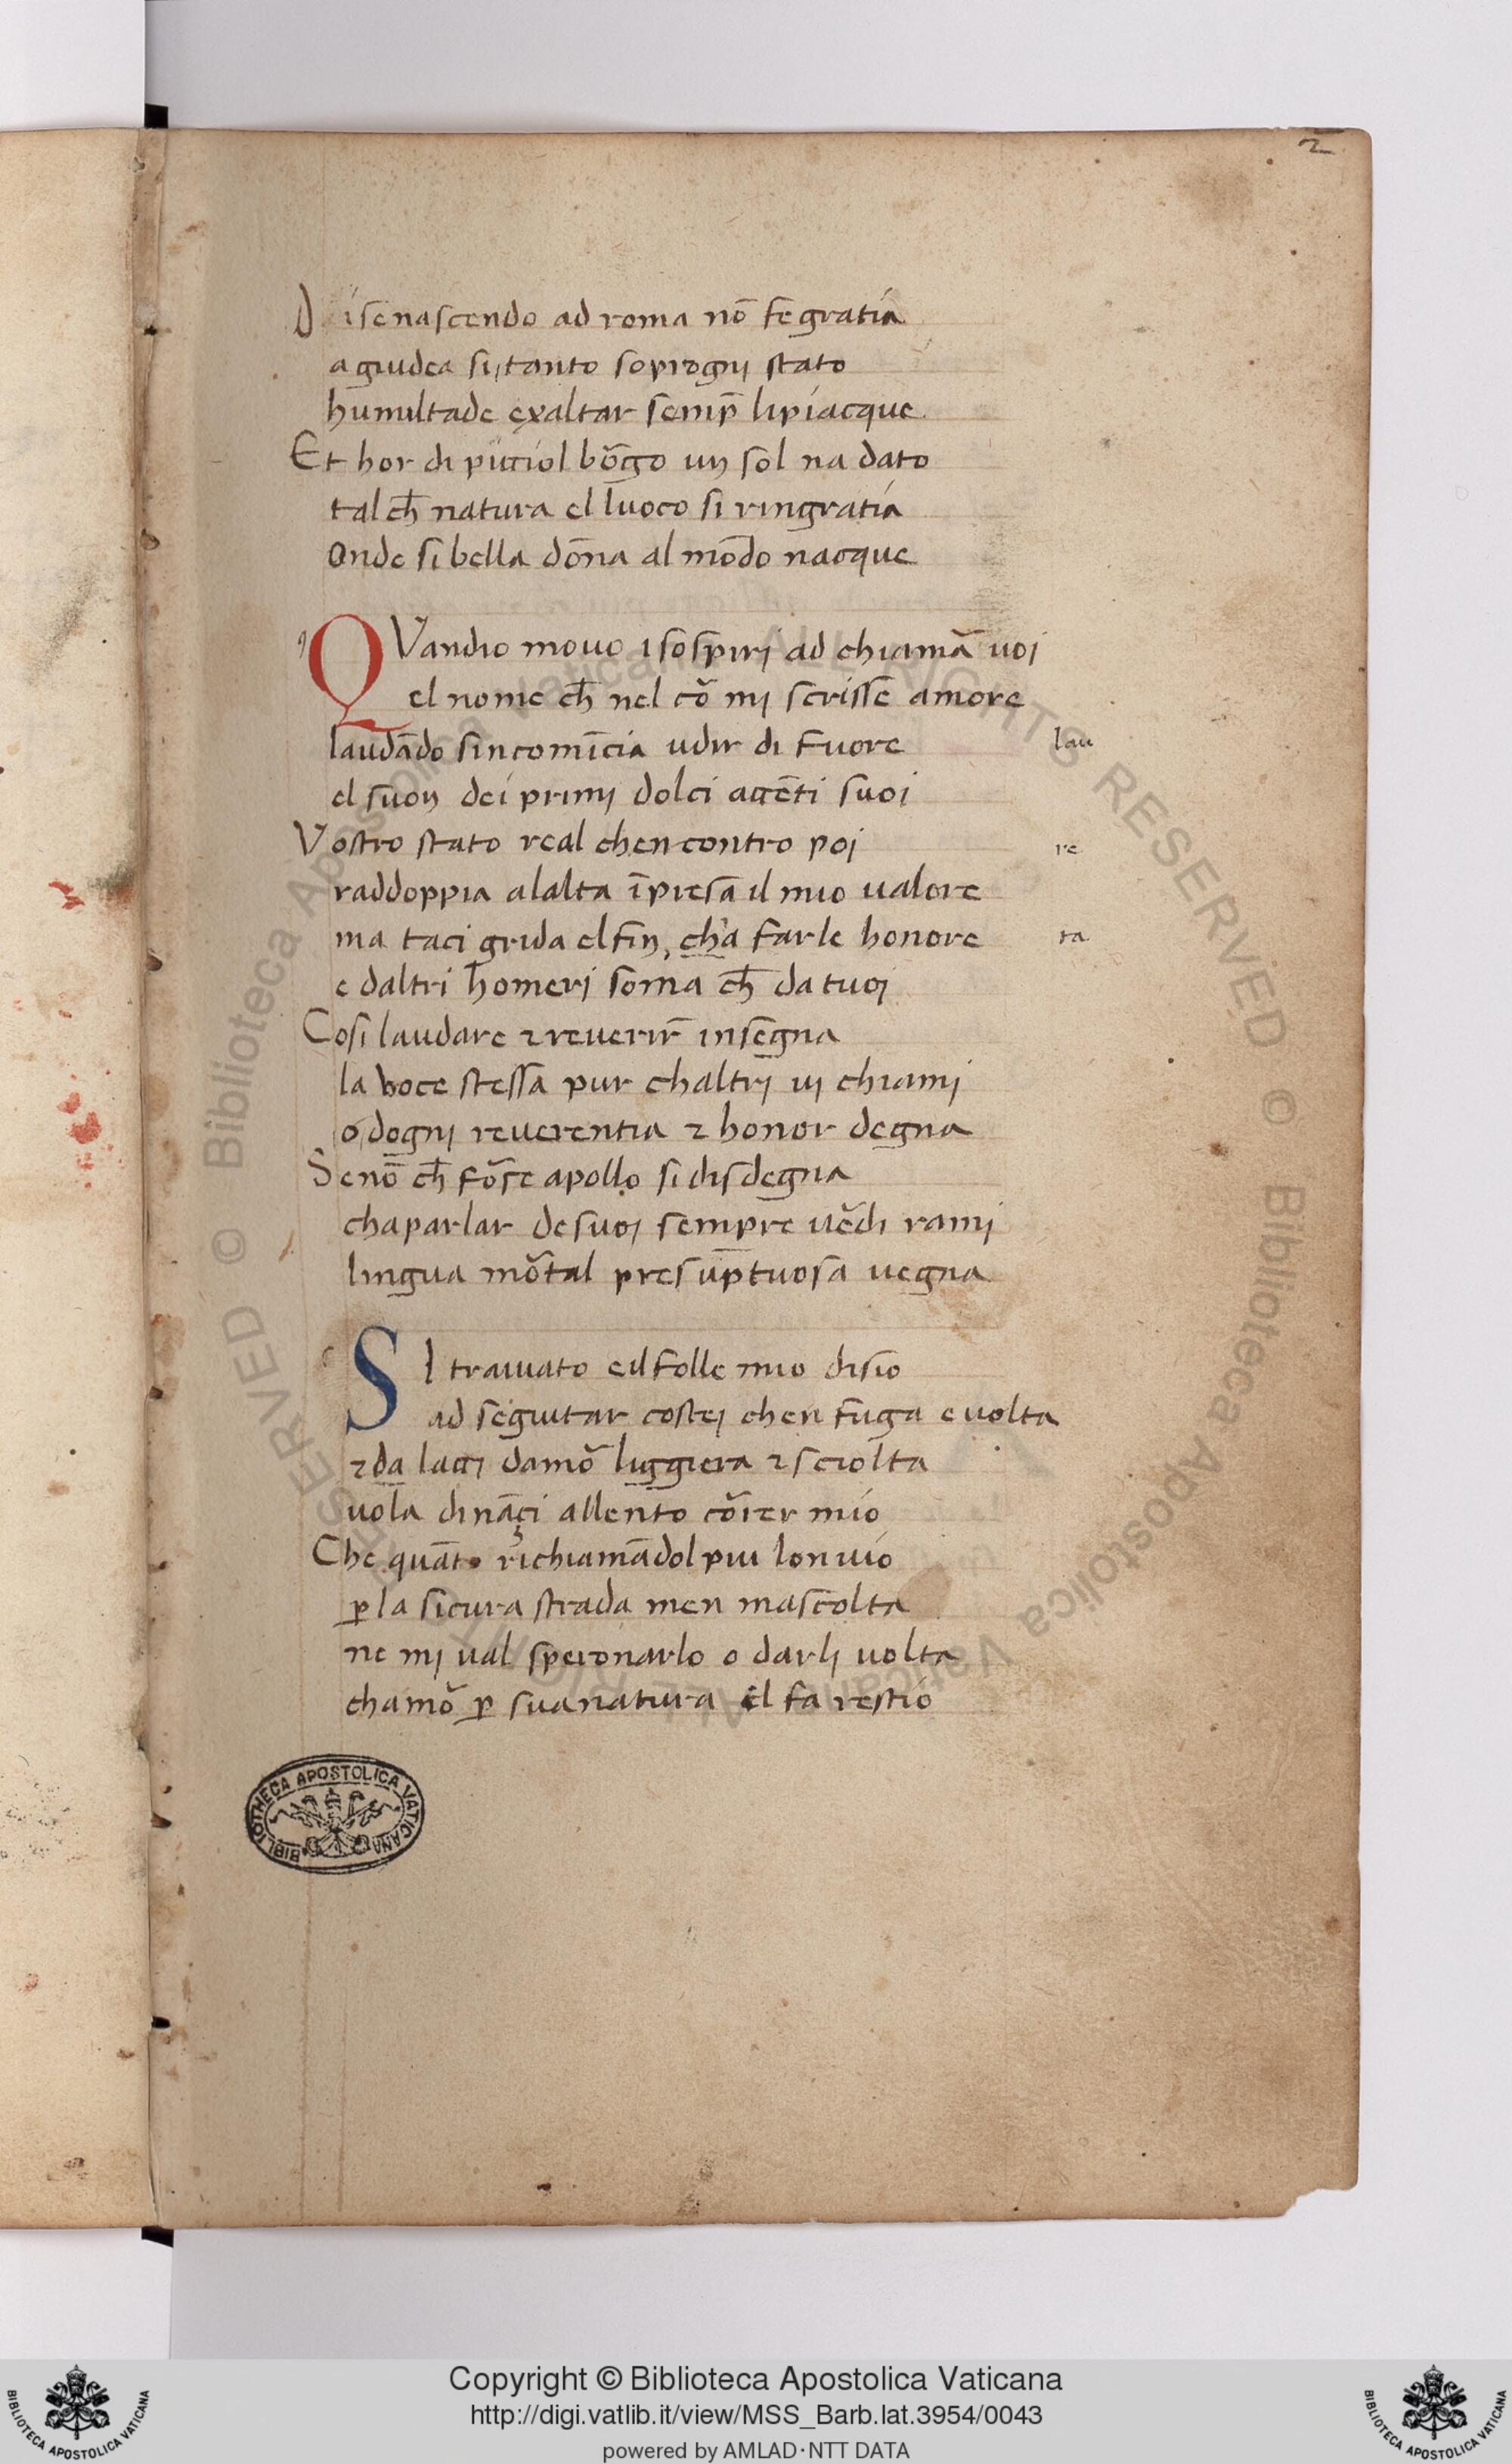 2
Di sé nascendo ad roma nō fe gratia
a giudea si, tanto soprogni stato
humiltade exaltar semp̄ li piacque
Et hor di picciol bōgo un sol na dato
tal ch̄ natura el luoco si ringratia
Onde si bella dōna al mōdo nacque
QVandio mouo i sospiri ad chiamā uoi
el nome ch̄ nel cō mi scrisse amore
laudādo sincomīcia udir di fuore lau
el suon dei primi dolci accēti suoi
Vostro stato real chencontro poi re
raddoppia alalta īpresa il mio ualore
ma taci grida el fin, cha farle honore ta
e daltri homeri soma ch̄ da tuoi
Cosi laudare ⁊ reuerir insegna
la voce stessa pur chaltri ui chiami
o dogni reuerentia ⁊ honor degna
Se nō ch̄ fōse apollo si disdegna
cha parlar de suoi sempre uēdi rami
lingua mōtal presūptuosa uegna
SI trauiato e il folle mio disio
ad seguitar costei chen fuga e uolta
⁊ da lacci damō liggiera ⁊ sciolta
uola dināçi allento cōrer mio
Che quāto richiamādol piu lonuio
ꝑ la sicura strada men mascolta
ne mi ual speronarlo o darli uolta
chamō ꝑ sua natura el fa restio
BIBLIOTHECA APOSTOLICA VATICANA
Copyright © Biblioteca Apostolica Vaticana
http://digi.vatlib.it/view/MSS_Barb.lat.3954/0043
powered by AMLAD·NTT DATA
BIBLIOTECA APOSTOLICA VATICANA
BIBLIOTECA APOSTOLICA VATICANA